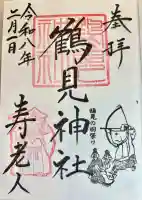 奉拝
鶴見神社
令和八年
二月一日
寿老人
鶴見の田祭り